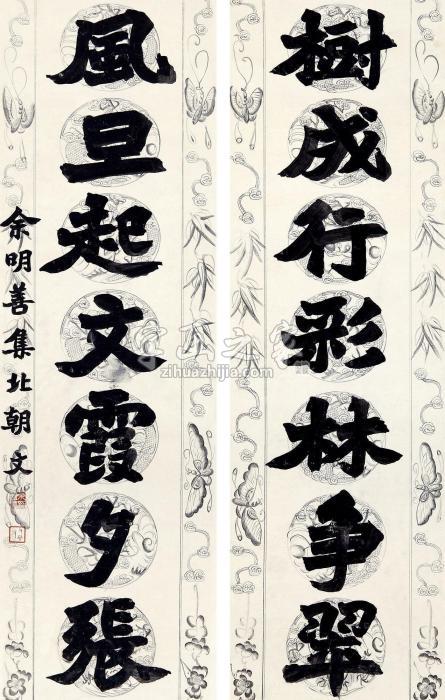 樹成行彩林争翠
風旦起文霞夕張
余明善集北朝文
字画之家
zihuazhijia.com